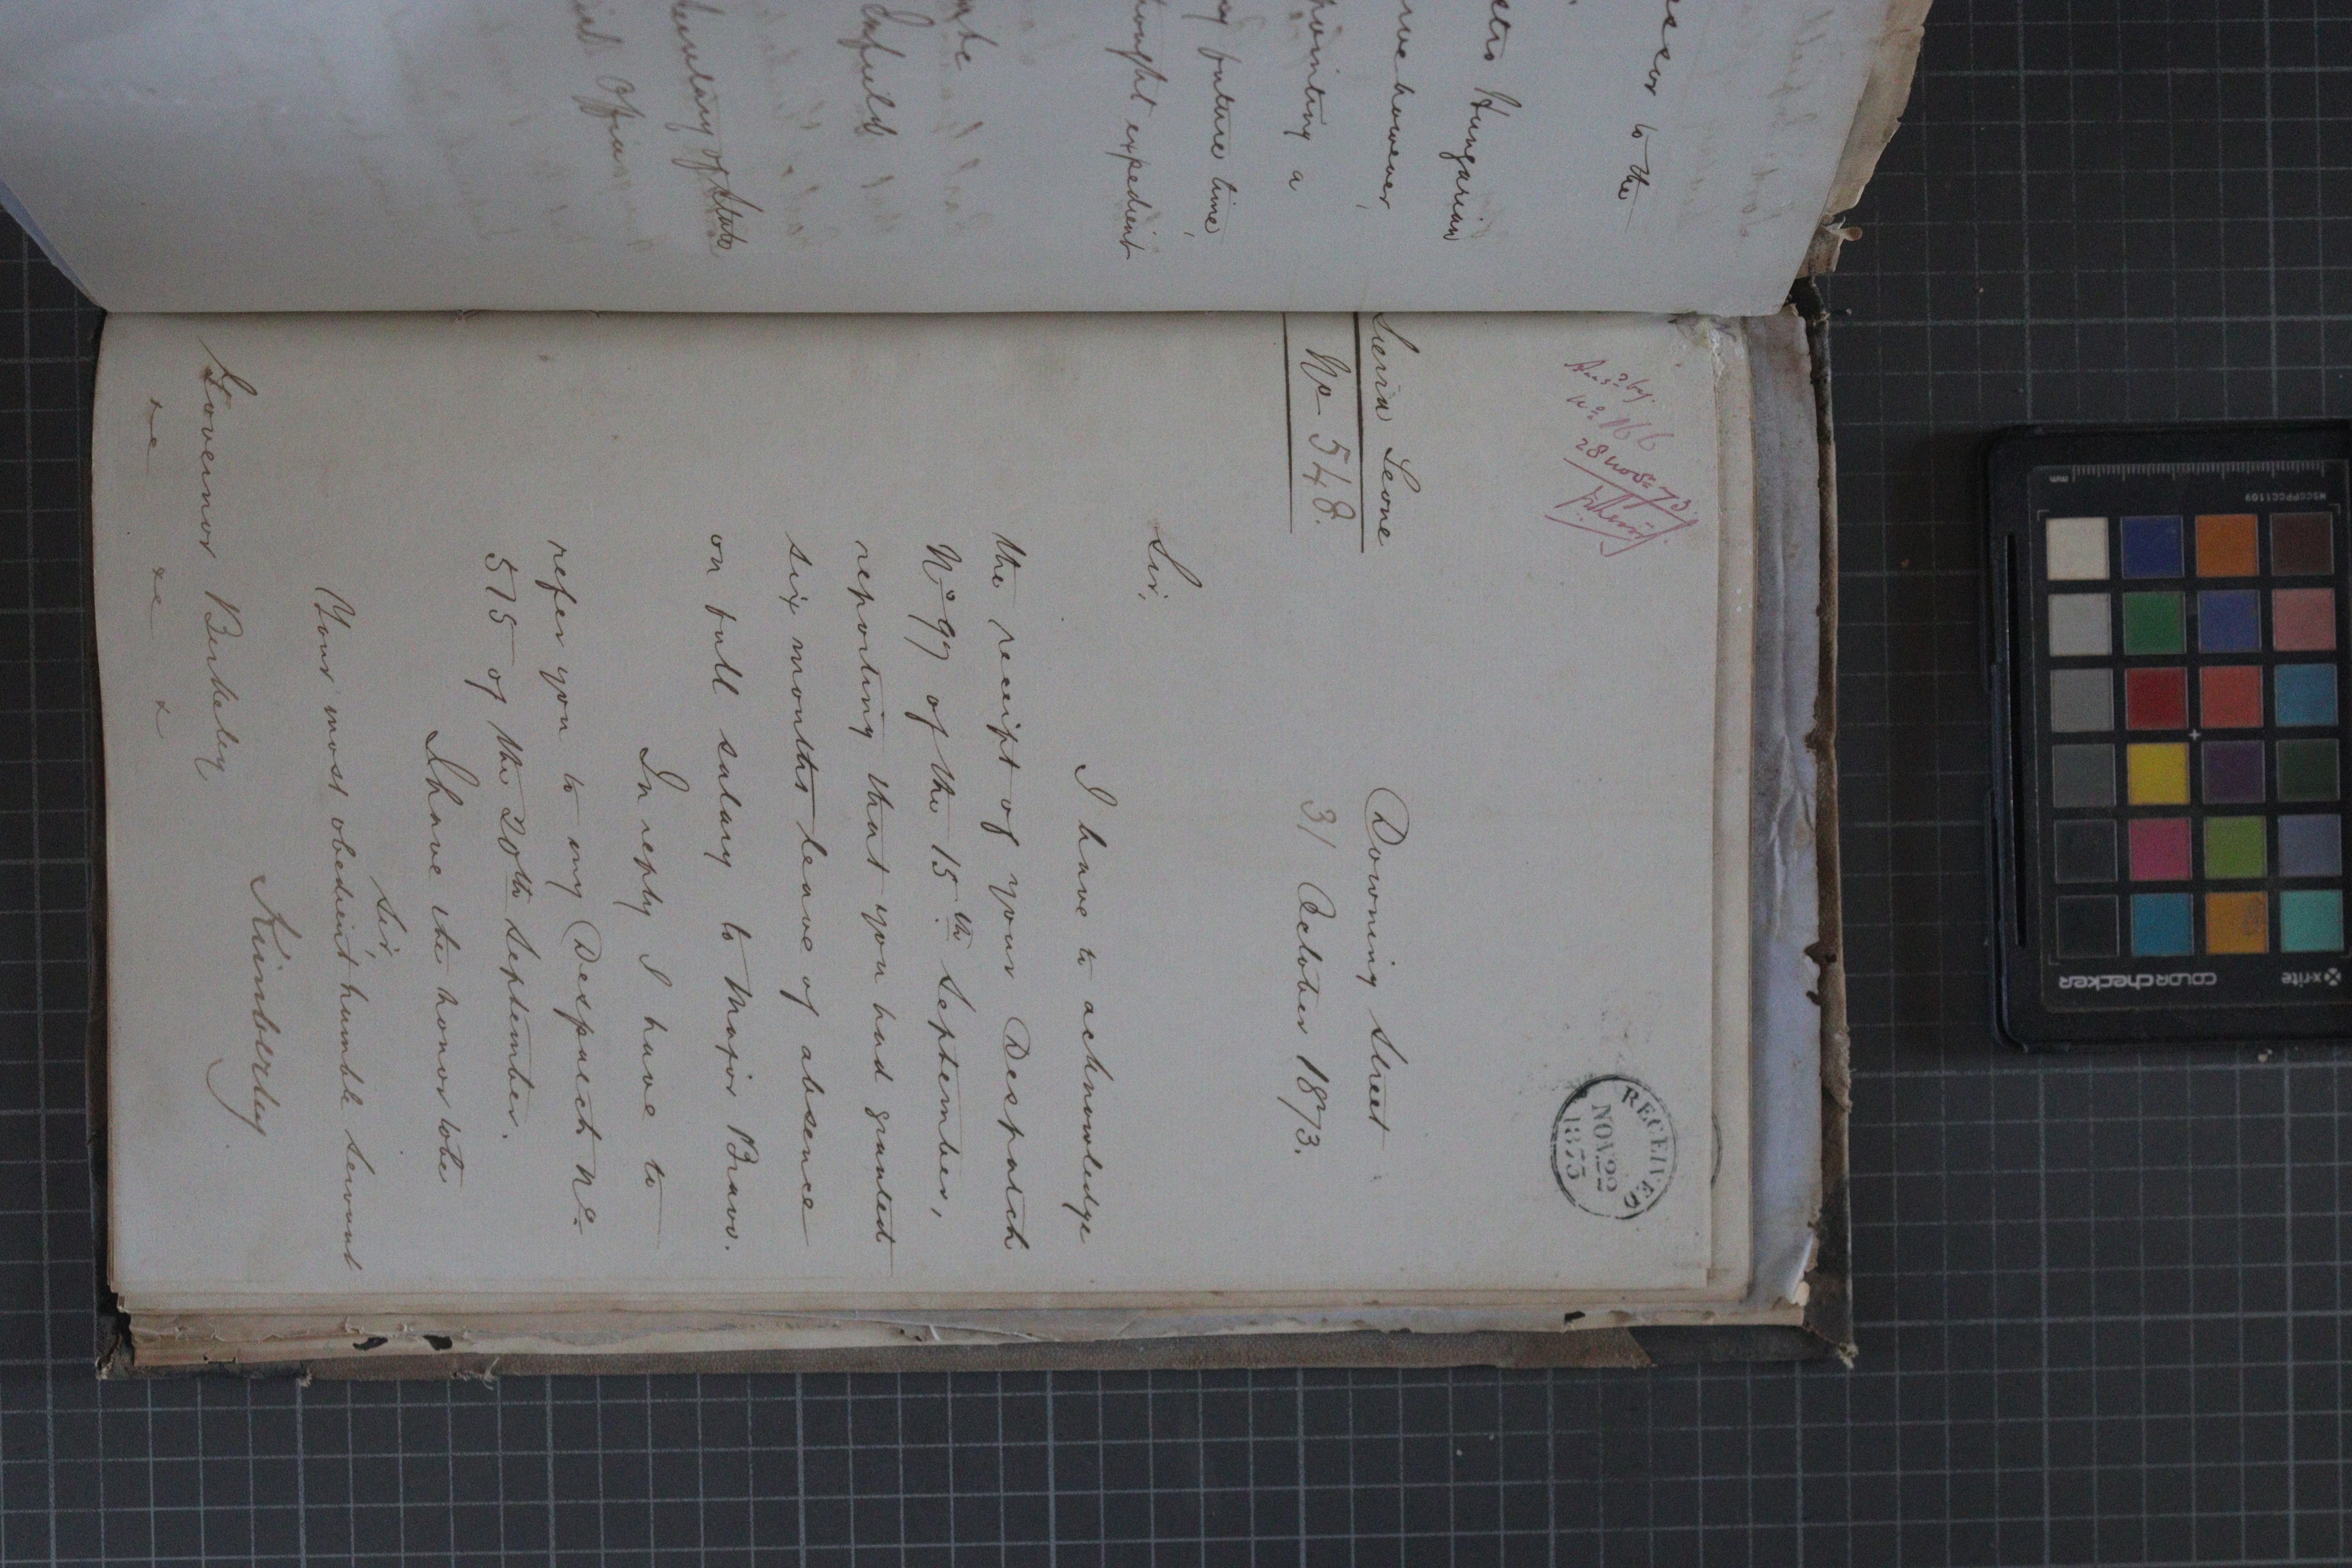 essor to the
stro Hungarian
rve however,
pointing a
y future time,
hought expedient
Enfield
Secretary of State
Ansd by
No 166
28 Novr 73
RECEIVED
NOV 22
1873
Sierra Leone
No 548.
Downing Street
31 October 1873.
Sir,
I have to acknowledge
the receipt of your Despatch
No 99 of the 15th September,
reporting that you had granted
six months leave of absence
on full salary to Major Bravo.
In reply I have to
refer you to my Despatch No
575 of the 20th September.
I have the honor to be
Sir,
Your most obedient humble Servant
Kimberley
Governor Berkeley
&c &c &c
mm
MSCCPPCC1109
x-rite
colorchecker